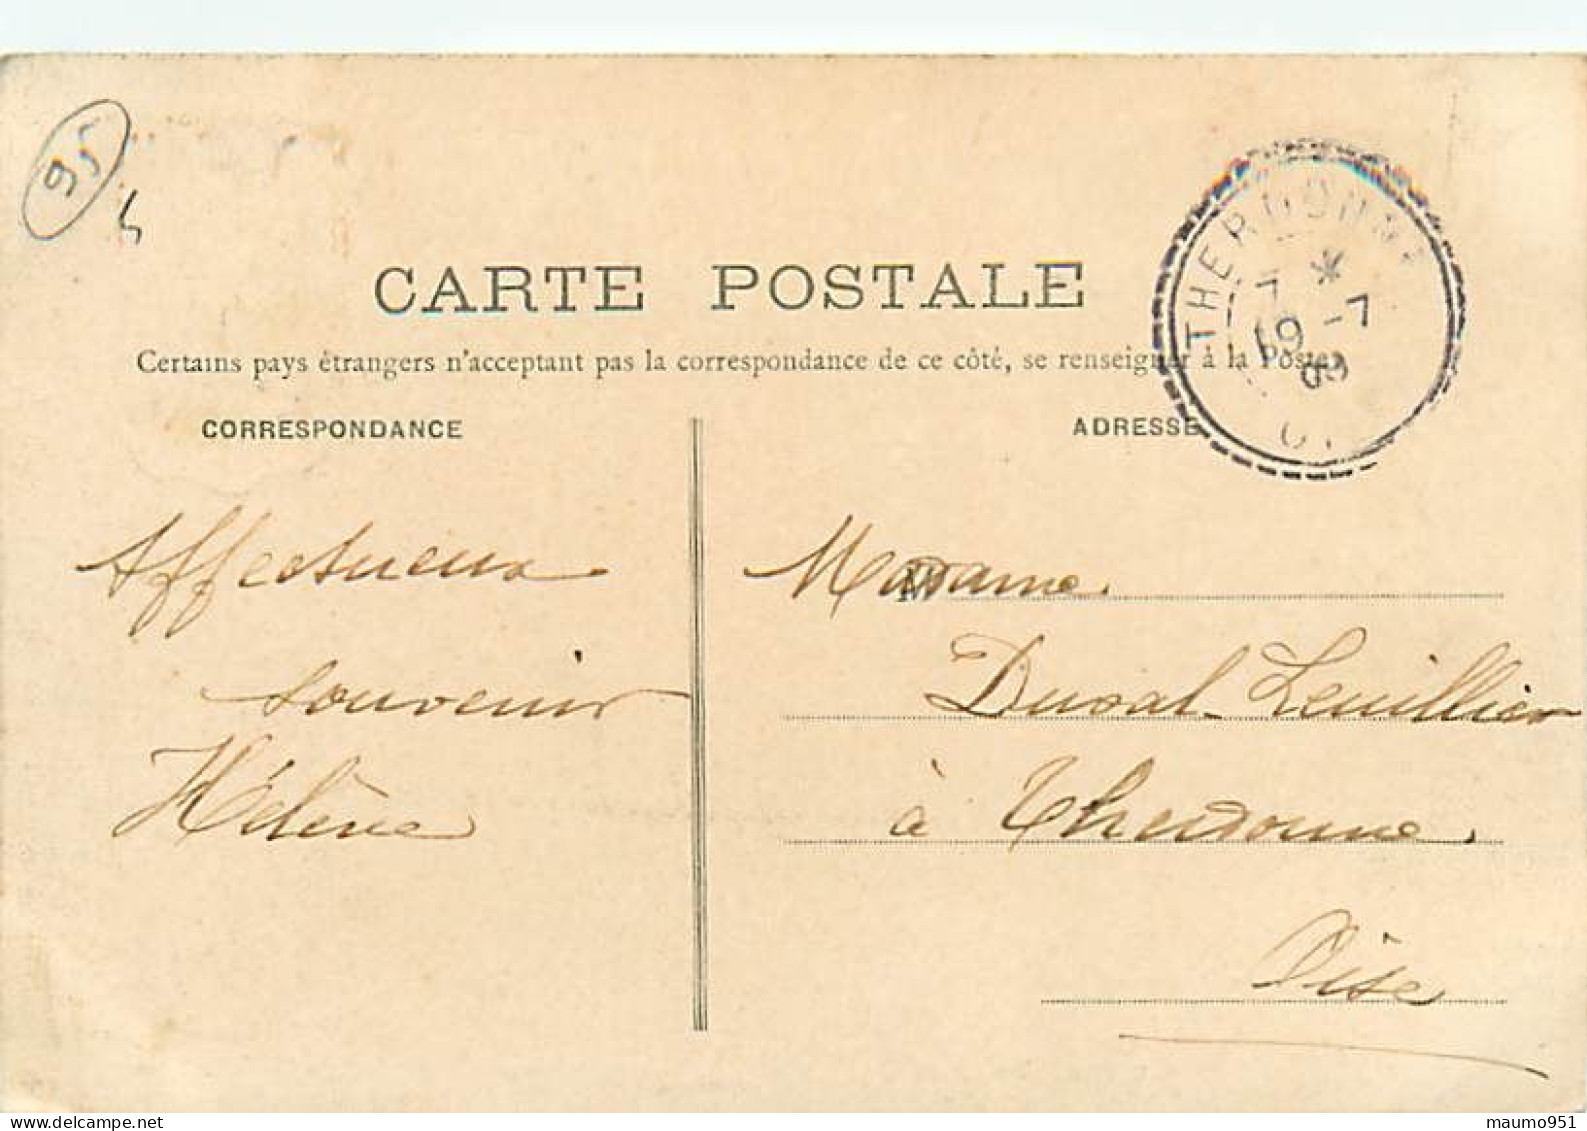 95
CARTE POSTALE
Certains pays étrangers n'acceptant pas la correspondance de ce côté, se renseigner à la Poste
CORRESPONDANCE
ADRESSE
THERDONNE
7 *
19 -7
09
Affectueux
souvenir
Hélène
M
Madame
Duval-Leuillier
à Therdonne.
Oise
maumo951